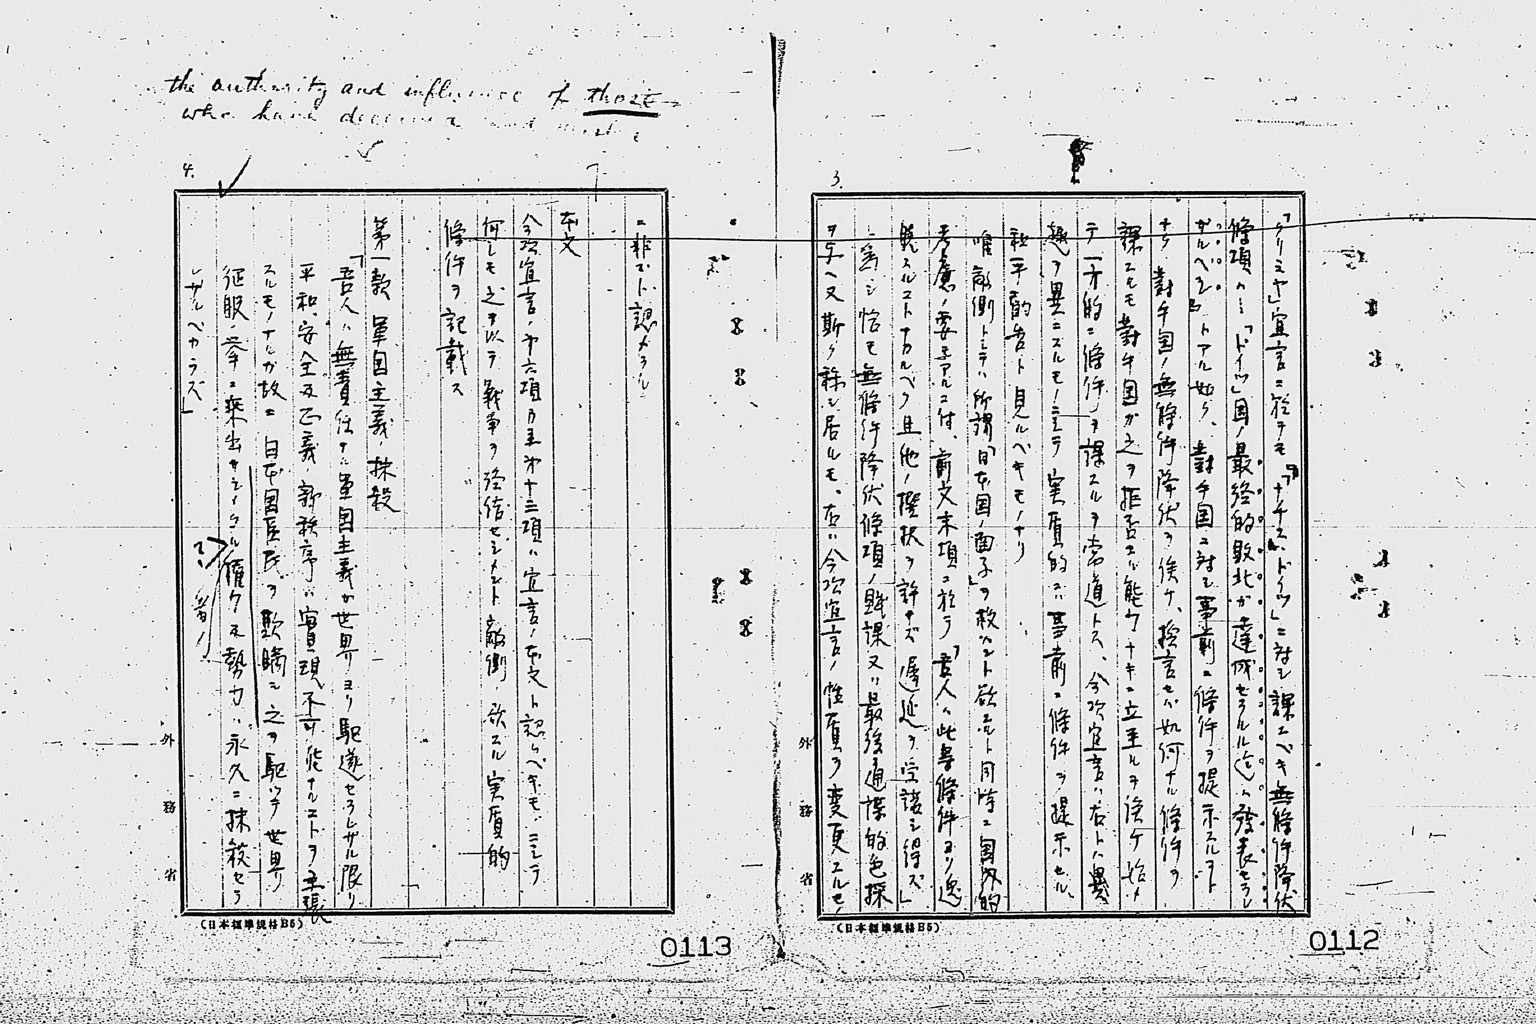 3.
「クリミヤ」宣言ニ於テモ『「ナチス、ドイツ」ニ対シ課スベキ無條件降伏
條項ハ「ドイツ」国ノ最終的敗北ガ達成セラルル迄ハ発表セラレ
ザルヘシ』トアル如ク、對手国ニ対シ事前ニ條件ヲ提示スルコト
ナク對手国ノ無條件降伏ヲ俟ケ、換言セバ如何ナル條件ヲ
課スルモ對手国ガ之ヲ拒否スル能ワザルニ立至ルヲ俟ケ始メ
テ一方的ニ條件ヲ課スルヲ常道トス、今次宣言ハ右トハ異
趣ヲ異ニスルモノニシテ実質的ニハ事前ニ條件ヲ提示セル
和平勧告ト見ルベキモノナリ
唯敵側トシテハ所謂「日本国ノ面子」ヲ救ハント欲スルト同時ニ国内的
考慮ノ要モアルニ付、前文末項ニ於テ「吾人ハ此等條件ヨリ逸
脱スルコトナカルベク且他ノ撰択ヲ許サズ遅延ヲ受諾シ得ズ」
ト為シ恰モ無條件降伏條項ノ賦課又ハ最後通牒的色採
ヲ与ヘ又斯ク称シ居ルモ、右ハ今次宣言ノ性質ヲ変更スルモノ
外務省
(日本標準規格B5)
0112
the authority and influence of those
who have deceived and
4.
ニ非ズト認メラル
本文
今次宣言ノ第六項乃至第十三項ハ宣言ノ本文ト認ムベキモノニシテ
何レモ之ヲ以テ戦争ヲ終結セシメント敵側ノ欲スル実質的
條件ヲ記載ス
第一款 軍国主義抹殺
「吾人ハ無責任ナル軍国主義ガ世界ヨリ駆逐セラレザル限リ
平和、安全及正義ノ新秩序ハ實現不可能ナルコトヲ主張
スルモノナルガ故ニ日本国臣民ヲ欺瞞シ之ヲ駆ツテ世界
征服ノ挙ニ乗出サシメタル権力及勢力ハ永久ニ抹殺セラ
レザルベカラズ」
者ノ
外務省
(日本標準規格B5)
0113